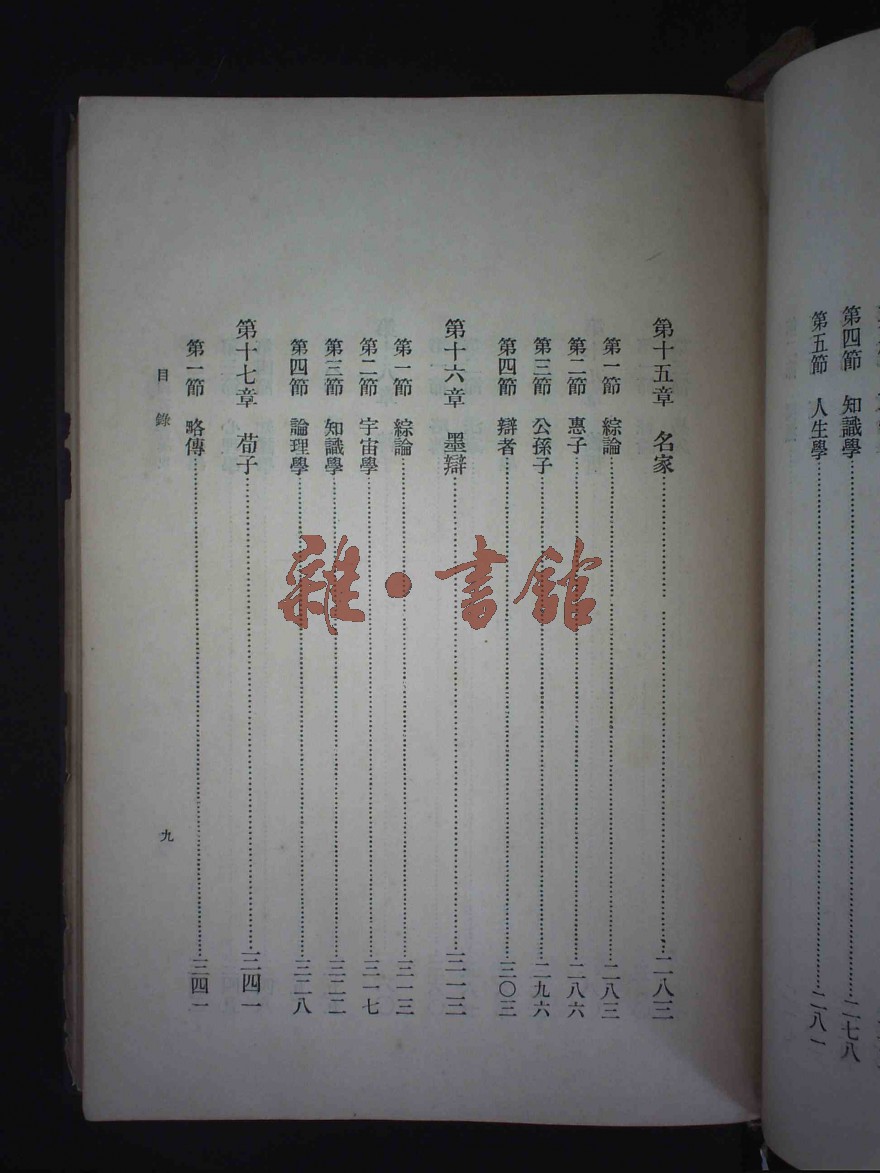 第四節　知識學……二七八
第五節　人生學……二八一
第十五章　名家……二八三
第一節　綜論……二八三
第二節　惠子……二八六
第三節　公孫子……二九六
第四節　辯者……三〇三
第十六章　墨辯……三一三
第一節　綜論……三一三
第二節　宇宙學……三一七
第三節　知識學……三二二
第四節　論理學……三二八
第十七章　荀子……三四一
第一節　略傳……三四一
目錄
九
雜·書館